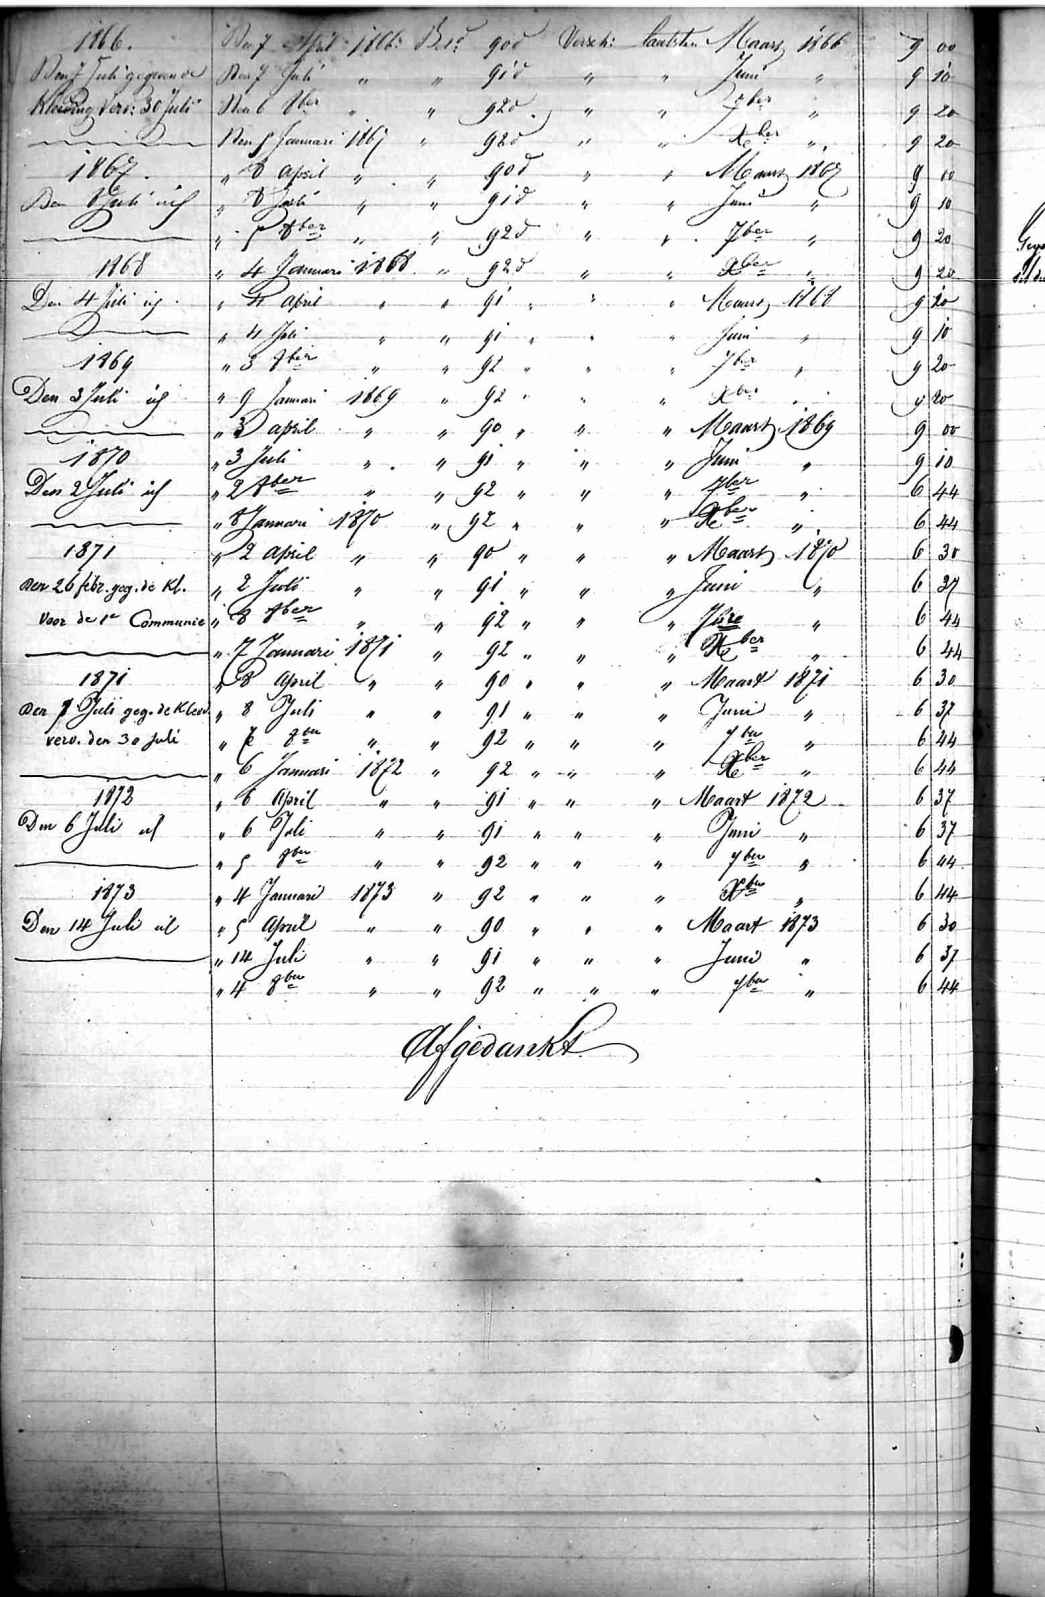 1866. Den 7 April 1866: Bet.d 90d Versch: laatsten Maart 1866 9 00
Den 7 Juli gegeven de Den 7 Juli " " 91d " " Juni " 9 10
Kleeding verv: 30 Juli Den 6 8ber " " 92d " " 7ber " 9 20
Den 5 Januari 1867 " 92d " " Xber " 9 20
1867. " 8 April " " 90d " " Maart 1867 9
Den 8 Juli " 8 Juli " " 91d " " Juni " 9 10
" 5 8ber " " 92d " " 7ber " 9 20
1868 " 4 Januari 1868 " 92d " " Xber " 9 20
Den 4 Juli " 4 April " " 91 " " " Maart 1868 9
" 4 Juli " " 91 " " " Juni " 9 10
1869 " 3 8ber " " 92 " " " 7ber " 9 20
Den 3 Juli " 9 Januari 1869 " 92 " " " Xber " 9 20
" 3 April " " 90 " " " Maart 1869 9 00
1870 " 3 Juli " " 91 " " " Juni " 9 10
Den 2 Juli " 2 8ber " " 92 " " " 7ber " 6 44
" 8 Januari 1870 " 92 " " " Xber " 6 44
1871 " 2 April " " 90 " " " Maart 1870 6 30
den 26 febr. geg. de Kl. " 2 Juli " " 91 " " " Juni " 6 37
voor de 1e Communie " 8 8ber " " 92 " " " " 6 44
" 7 Januari 1871 " 92 " " " Xber " 6 44
1871 " 8 April " " 90 " " " Maart 1871 6 30
den Juli geg. de Kleed. " 8 Juli " " 91 " " " Juni " 6 37
verv. den 30 Juli " 7 8ber " " 92 " " " 7ber " 6 44
" 6 Januari 1872 " 92 " " " Xber " 6 44
1872 " 6 April " " 91 " " " Maart 1872 6 37
Den 6 Juli " 6 Juli " " 91 " " " Juni " 6 37
" 5 8ber " " 92 " " " 7ber " 6 44
1873 " 4 Januari 1873 " 92 " " " Xber " 6 44
Den 14 Juli " 5 April " " 90 " " " Maart 1873 6 30
" 14 Juli " " 91 " " " Juni " 6 37
" 4 8ber " " 92 " " " 7ber " 6 44
Afgedankt